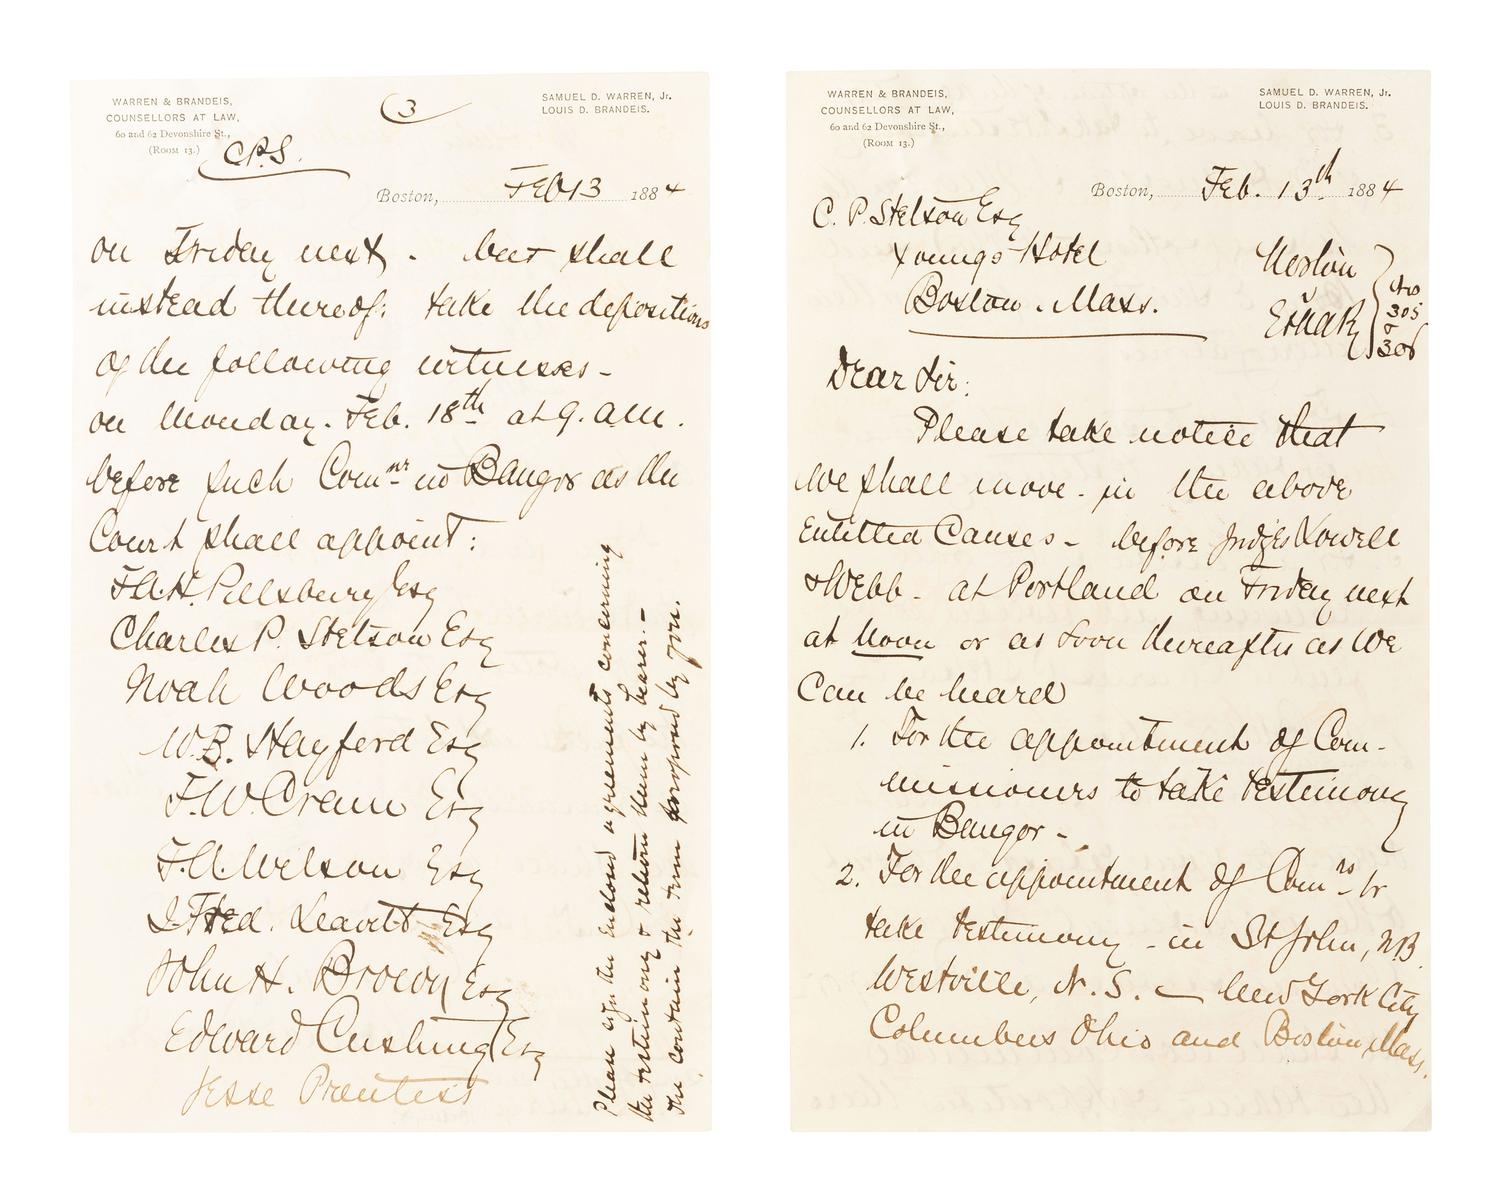 WARREN & BRANDEIS,
COUNSELLORS AT LAW,
60 and 62 Devonshire St.,
(ROOM 13.)
C.P.S.
3
SAMUEL D. WARREN, Jr.
LOUIS D. BRANDEIS.
Boston, Feb 13 1884
on Friday next. but shall
instead thereof: take the depositions
of the following witnesses -
on Monday. Feb. 18th at 9. a.m.
before such Comnr in Bangor as the
Court shall appoint:
F.A.H. Pillsbury Esq
Charles P. Stetson Esq
Noah Woods Esq
W.B. Hayford Esq
F.W. Cram Esq
F.A. Wilson Esq
J. Fred. Leavitt Esq
John H. Brown Esq
Edward Cushing Esq
Jesse Prentiss
Please sign the enclosed agreements concerning
the testimony & return them by bearer. -
They contain the terms proposed by you.
WARREN & BRANDEIS,
COUNSELLORS AT LAW,
60 and 62 Devonshire St.,
(ROOM 13.)
SAMUEL D. WARREN, Jr.
LOUIS D. BRANDEIS.
Boston, Feb. 13th 1884
C. P. Stetson Esq
Youngs Hotel
Boston. Mass.
305
306
Dear Sir:
Please take notice that
we shall move - in the above
Entitled Causes - before Judges Lowell
& Webb - at Portland on Friday next
at Noon or as soon thereafter as we
can be heard
1. For the appointment of Com-
missioners to take testimony
in Bangor -
2. For the appointment of Comrs to
take testimony - in St John, N.B.
Westville, N.S. - New York City
Columbus Ohio and Boston Mass.